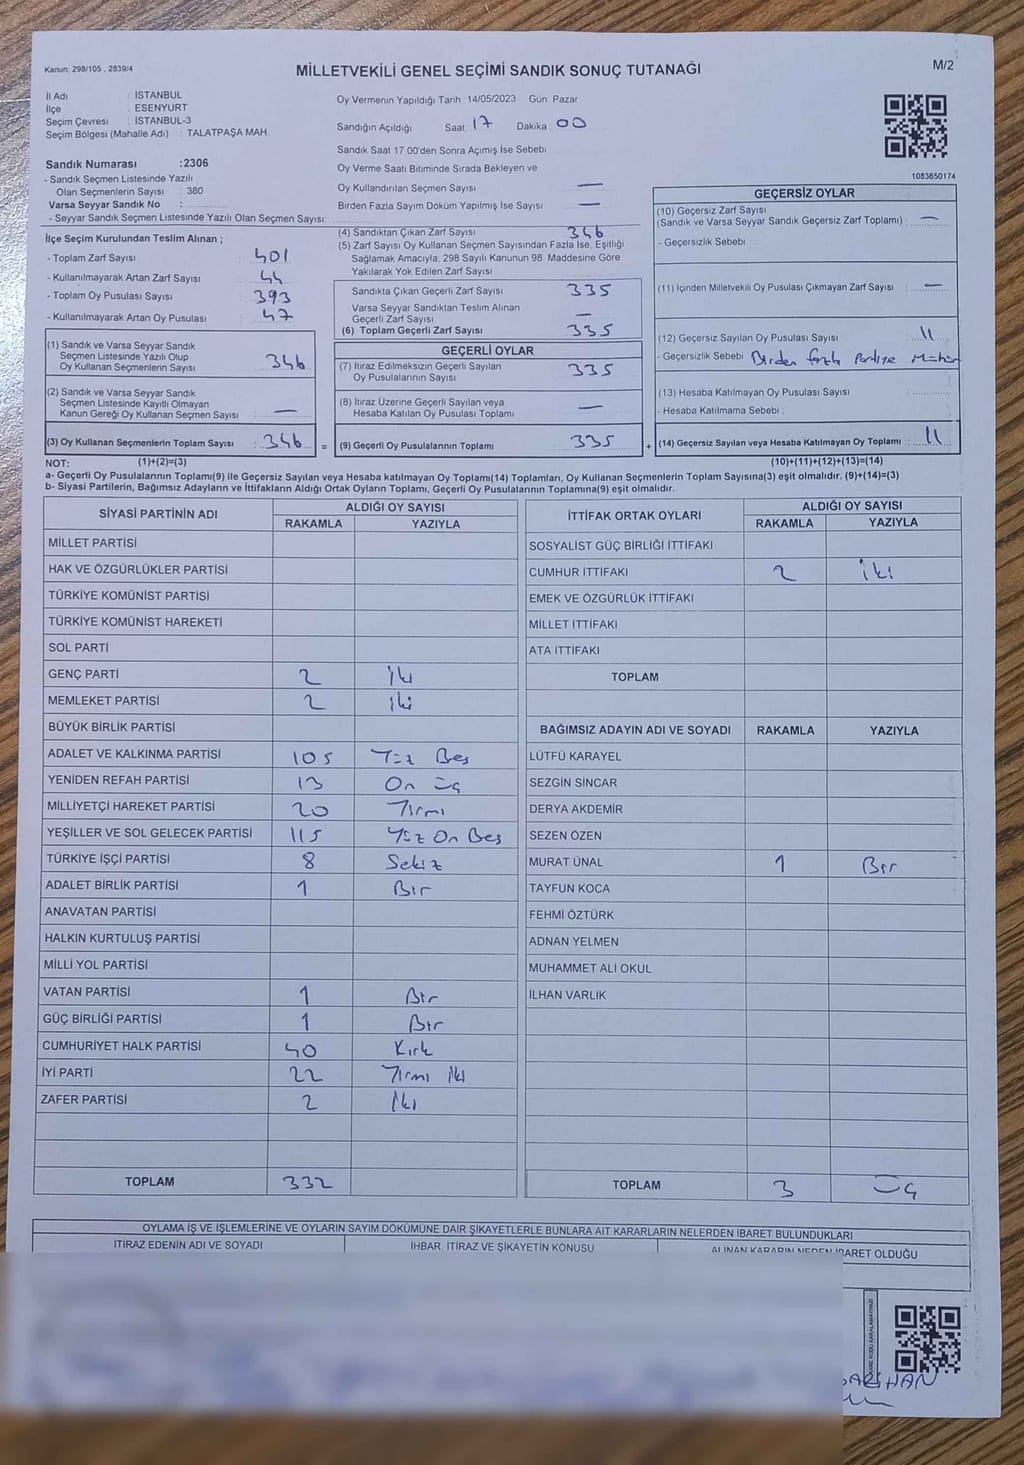 Kanun: 298/105 , 2839/4
MİLLETVEKİLİ GENEL SEÇİMİ SANDIK SONUÇ TUTANAĞI
M/2
İl Adı : İSTANBUL
İlçe : ESENYURT
Seçim Çevresi : İSTANBUL-3
Seçim Bölgesi (Mahalle Adı) : TALATPAŞA MAH.
Oy Vermenin Yapıldığı Tarih 14/05/2023 Gün Pazar
Sandığın Açıldığı Saat: 17 Dakika 00
Sandık Saat 17:00'den Sonra Açımış İse Sebebi
Oy Verme Saati Bitiminde Sırada Bekleyen ve
Oy Kullandırılan Seçmen Sayısı —
Birden Fazla Sayım Döküm Yapılmış İse Sayısı —
Sandık Numarası :2306
- Sandık Seçmen Listesinde Yazılı
Olan Seçmenlerin Sayısı : 380
Varsa Seyyar Sandık No :
- Seyyar Sandık Seçmen Listesinde Yazılı Olan Seçmen Sayısı:
1083650174
İlçe Seçim Kurulundan Teslim Alınan ;
- Toplam Zarf Sayısı : 401
- Kullanılmayarak Artan Zarf Sayısı : 44
- Toplam Oy Pusulası Sayısı : 393
- Kullanılmayarak Artan Oy Pusulası : 47
(1) Sandık ve Varsa Seyyar Sandık
Seçmen Listesinde Yazılı Olup
Oy Kullanan Seçmenlerin Sayısı : 346
(2) Sandık ve Varsa Seyyar Sandık
Seçmen Listesinde Kayıtlı Olmayan
Kanun Gereği Oy Kullanan Seçmen Sayısı : —
(3) Oy Kullanan Seçmenlerin Toplam Sayısı : 346 =
(4) Sandıktan Çıkan Zarf Sayısı 346
(5) Zarf Sayısı Oy Kullanan Seçmen Sayısından Fazla İse, Eşitliği
Sağlamak Amacıyla, 298 Sayılı Kanunun 98. Maddesine Göre
Yakılarak Yok Edilen Zarf Sayısı
Sandıkta Çıkan Geçerli Zarf Sayısı 335
Varsa Seyyar Sandıktan Teslim Alınan
Geçerli Zarf Sayısı —
(6) Toplam Geçerli Zarf Sayısı 335
GEÇERLİ OYLAR
(7) İtiraz Edilmeksizin Geçerli Sayılan
Oy Pusulalarının Sayısı 335
(8) İtiraz Üzerine Geçerli Sayılan veya
Hesaba Katılan Oy Pusulası Toplamı —
(9) Geçerli Oy Pusulalarının Toplamı 335 +
GEÇERSİZ OYLAR
(10) Geçersiz Zarf Sayısı
(Sandık ve Varsa Seyyar Sandık Geçersiz Zarf Toplamı) : —
- Geçersizlik Sebebi :
(11) İçinden Milletvekili Oy Pusulası Çıkmayan Zarf Sayısı : —
(12) Geçersiz Sayılan Oy Pusulası Sayısı : 11
- Geçersizlik Sebebi Birden fazla Partiye Mühür
(13) Hesaba Katılmayan Oy Pusulası Sayısı :
- Hesaba Katılmama Sebebi :
(14) Geçersiz Sayılan veya Hesaba Katılmayan Oy Toplamı : 11
NOT: (1)+(2)=(3) (10)+(11)+(12)+(13)=(14)
a- Geçerli Oy Pusulalarının Toplamı(9) ile Geçersiz Sayılan veya Hesaba katılmayan Oy Toplamı(14) Toplamları, Oy Kullanan Seçmenlerin Toplam Sayısına(3) eşit olmalıdır. (9)+(14)=(3)
b- Siyasi Partilerin, Bağımsız Adayların ve İttifakların Aldığı Ortak Oyların Toplamı, Geçerli Oy Pusulalarının Toplamına(9) eşit olmalıdır.
SİYASİ PARTİNİN ADI ALDIĞI OY SAYISI
RAKAMLA YAZIYLA
MİLLET PARTİSİ
HAK VE ÖZGÜRLÜKLER PARTİSİ
TÜRKİYE KOMÜNİST PARTİSİ
TÜRKİYE KOMÜNİST HAREKETİ
SOL PARTİ
GENÇ PARTİ 2 İki
MEMLEKET PARTİSİ 2 iki
BÜYÜK BİRLİK PARTİSİ
ADALET VE KALKINMA PARTİSİ 105 Yüz Beş
YENİDEN REFAH PARTİSİ 13 On üç
MİLLİYETÇİ HAREKET PARTİSİ 20 Yirmi
YEŞİLLER VE SOL GELECEK PARTİSİ 115 Yüz On Beş
TÜRKİYE İŞÇİ PARTİSİ 8 Sekiz
ADALET BİRLİK PARTİSİ 1 Bir
ANAVATAN PARTİSİ
HALKIN KURTULUŞ PARTİSİ
MİLLİ YOL PARTİSİ
VATAN PARTİSİ 1 Bir
GÜÇ BİRLİĞİ PARTİSİ 1 Bir
CUMHURİYET HALK PARTİSİ 40 Kırk
İYİ PARTİ 22 Yirmi iki
ZAFER PARTİSİ 2 İki
TOPLAM 332
İTTİFAK ORTAK OYLARI ALDIĞI OY SAYISI
RAKAMLA YAZIYLA
SOSYALİST GÜÇ BİRLİĞİ İTTİFAKI
CUMHUR İTTİFAKI 2 iki
EMEK VE ÖZGÜRLÜK İTTİFAKI
MİLLET İTTİFAKI
ATA İTTİFAKI
TOPLAM
BAĞIMSIZ ADAYIN ADI VE SOYADI RAKAMLA YAZIYLA
LÜTFÜ KARAYEL
SEZGİN SİNCAR
DERYA AKDEMİR
SEZEN ÖZEN
MURAT ÜNAL 1 Bir
TAYFUN KOCA
FEHMİ ÖZTÜRK
ADNAN YELMEN
MUHAMMET ALİ OKUL
İLHAN VARLIK
TOPLAM 3 üç
OYLAMA İŞ VE İŞLEMLERİNE VE OYLARIN SAYIM DÖKÜMÜNE DAİR ŞİKAYETLERLE BUNLARA AİT KARARLARIN NELERDEN İBARET BULUNDUKLARI
İTİRAZ EDENİN ADI VE SOYADI İHBAR, İTİRAZ VE ŞİKAYETİN KONUSU ALINAN KARARIN NEDEN İBARET OLDUĞU